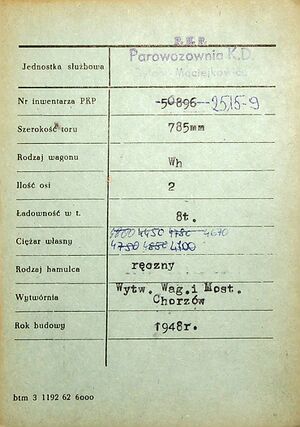 P.K.P.
Parowozownia K.D.
Jednostka służbowa Bytom - Maciejkowice
Nr inwentarza PKP -50896- 2515-9
Szerokość toru 785mm
Rodzaj wagonu Wh
Ilość osi 2
Ładowność w t. 8t.
4800 4450 4780 4670
Ciężar własny 4750 4850 4700
Rodzaj hamulca ręczny
Wytwórnia Wytw. Wag.i Most.
Chorzów
Rok budowy 1948r.
btm 3 1192 62 6000